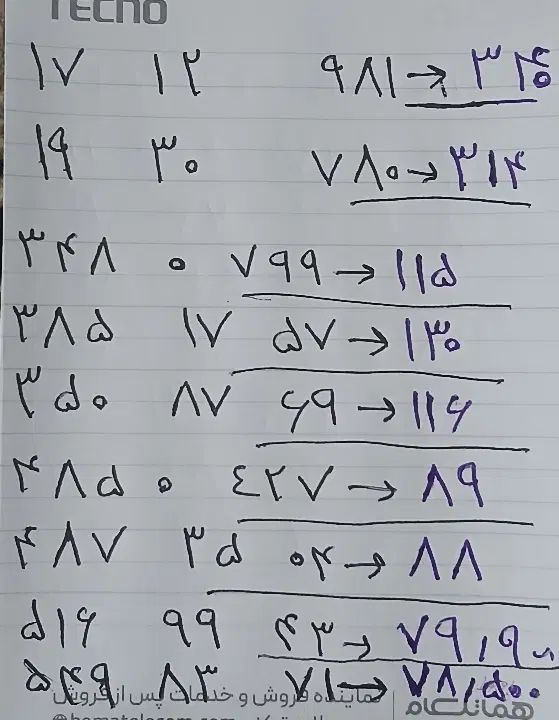 TECNO
۱۷ ۱۲ ۹۸۱ → ۳۴۰
۱۹ ۳۰ ۷۸۰ → ۳۱۴
۳۴۸ ۰ ۷۹۹ → ۱۱۵
۳۸۵ ۱۷ ۵۷ → ۱۳۰
۳۵۰ ۸۷ ۶۹ → ۱۱۶
۴۸۵ ۰ ٤۲۷ → ۸۹
۴۸۷ ۳۵ ۰۴ → ۸۸
۵۱۶ ۹۹ ۴۳ → ۷۹,۹۰۰
۵۴۹ ۸۳ ۷۱ → ۷۸,۵۰۰
نماینده فروش و خدمات پس از فروش
هماتلکام